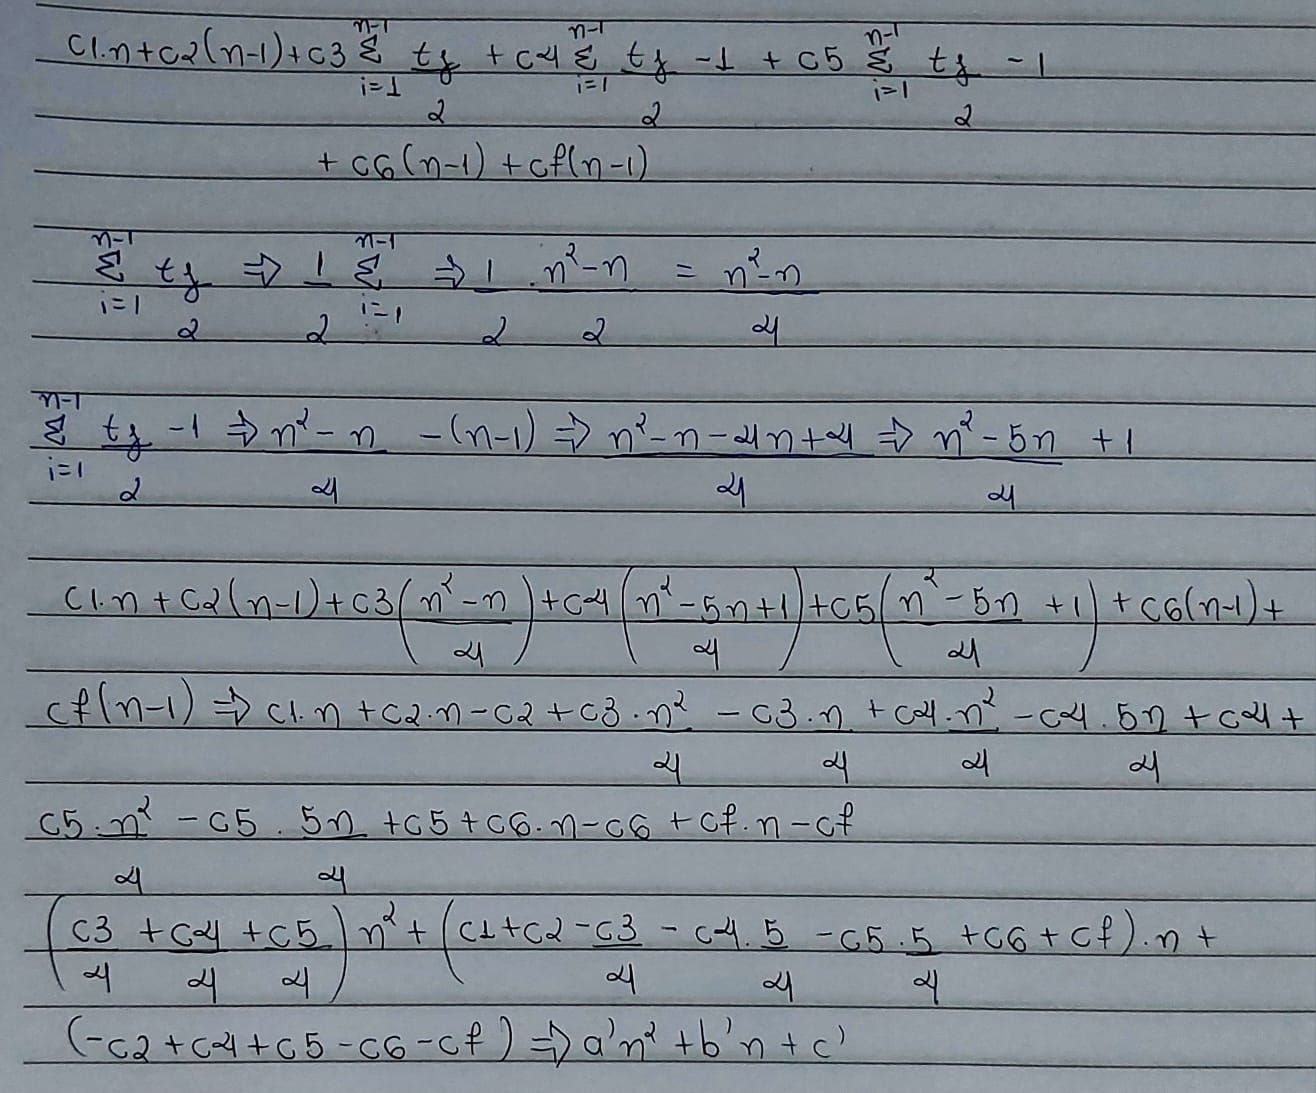 c1.n+c2(n-1)+c3 n-1 Σ i=1 tj/2 + c4 n-1 Σ i=1 tj/2 -1 + c5 n-1 Σ i=1 tj/2 - 1
+ c6(n-1) + cf(n-1)
n-1 Σ i=1 tj/2 ⇒ 1/2 n-1 Σ i=1 ⇒ 1/2 . n²-n/2 = n²-n/4
n-1 Σ i=1 tj/2 -1 ⇒ n²-n/4 -(n-1) ⇒ n²-n-4n+4/4 ⇒ n²-5n/4 +1
c1.n+c2(n-1)+c3(n²-n/4)+c4(n²-5n+1/4)+c5(n²-5n/4 +1)+c6(n-1)+
cf(n-1) ⇒ c1.n+c2.n-c2+c3.n²/4 -c3.n/4 +c4.n²/4 -c4.5n/4 +c4+
c5.n²/4 -c5.5n/4 +c5+c6.n-c6+cf.n-cf
(c3/4 +c4/4 +c5/4)n²+(c1+c2-c3/4 -c4.5/4 -c5.5/4 +c6+cf).n+
(-c2+c4+c5-c6-cf) ⇒ a'n²+b'n+c'